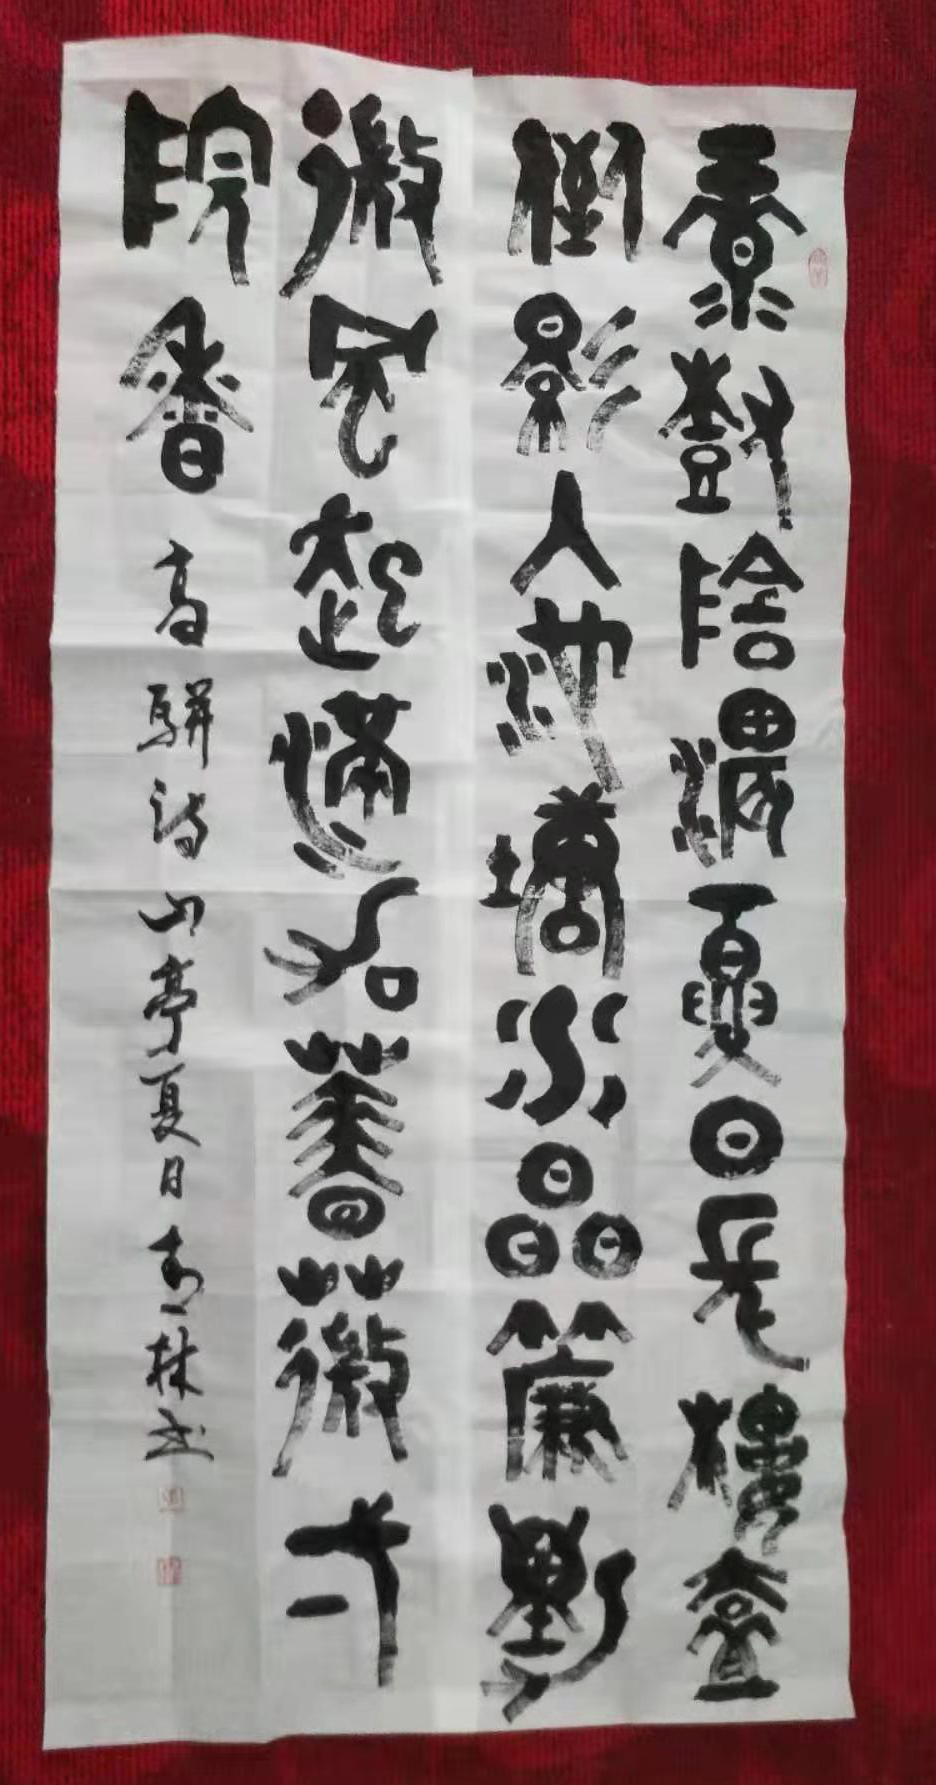 綠樹陰濃夏日長樓臺
倒影入池塘水晶簾動
微風起滿架薔薇弌
院香 高駢詩山亭夏日 林书